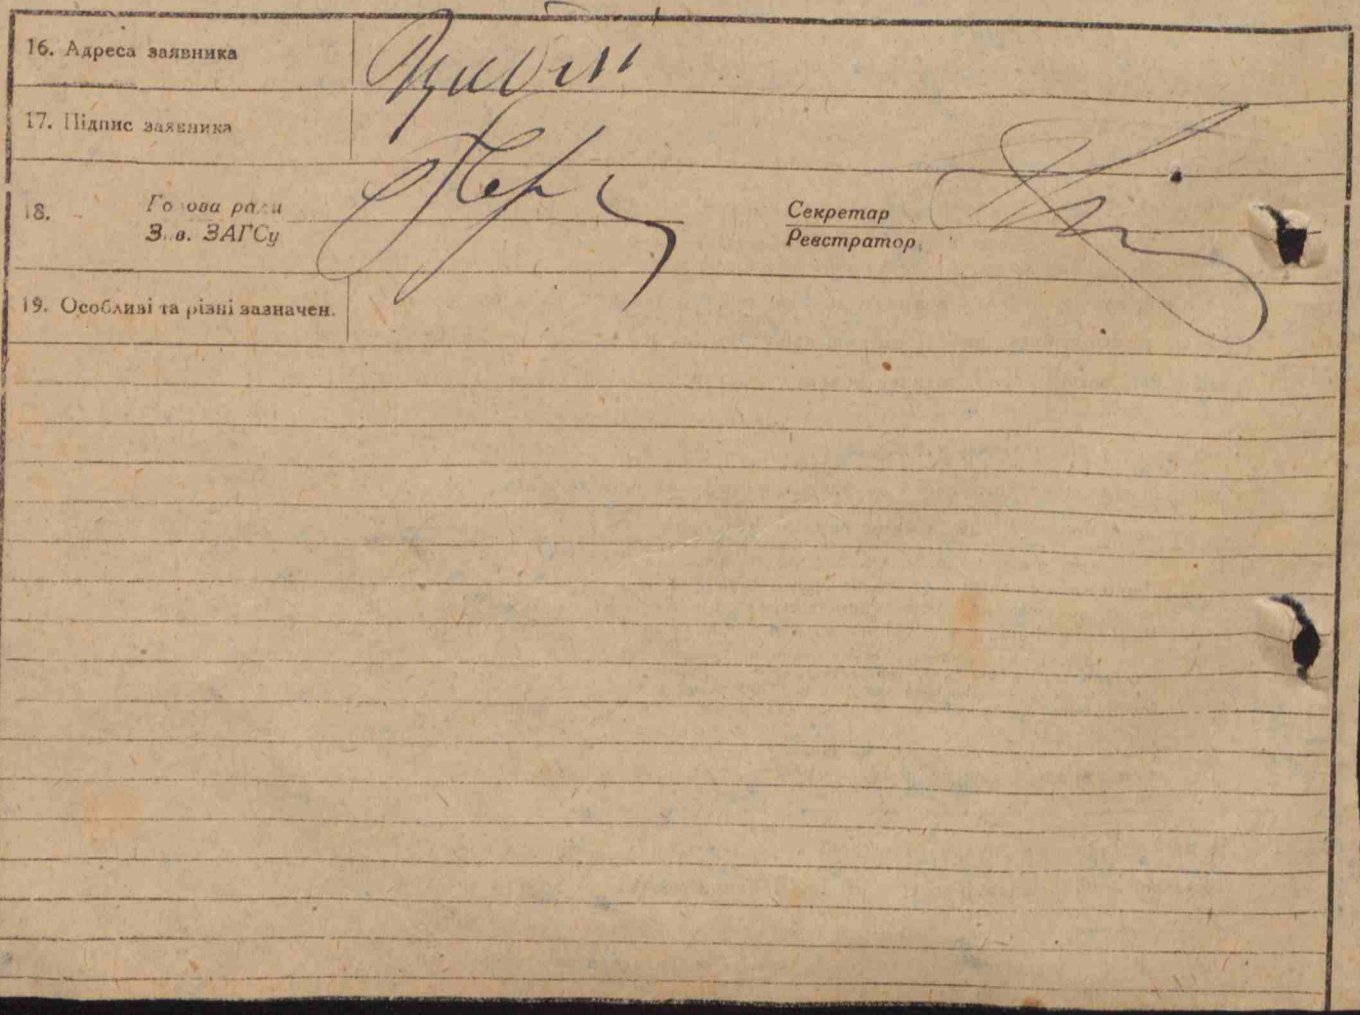 16. Адреса заявника
17. Підпис заявника
18. Голова ради
Зав. ЗАГСу
Секретар
Реєстратор
19. Особливі та різні зазначен.